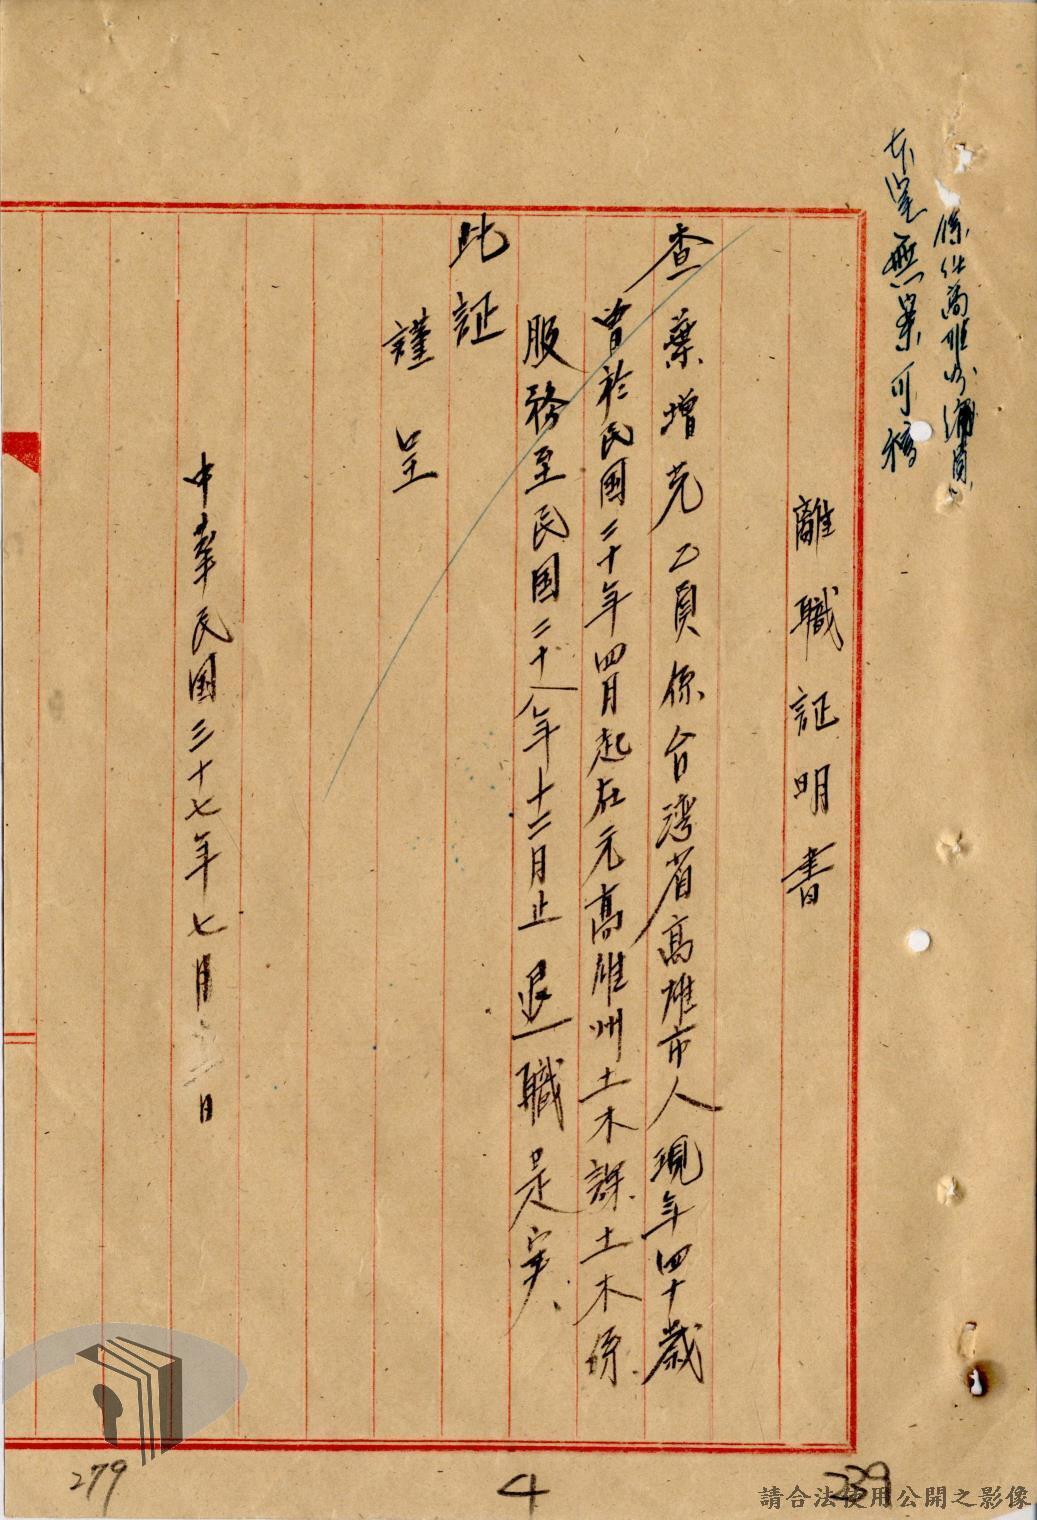 係仕高雄
本室無案可稽
離職証明書
查葉增克乙員係台湾省高雄市人現年四十歲
曾於民國二十年四月起在元高雄州土木課土木係
服務至民国二十八年十二月止退職是实
此証
謹呈
中華民国三十七年七月日
279
4
239
請合法使用公開之影像